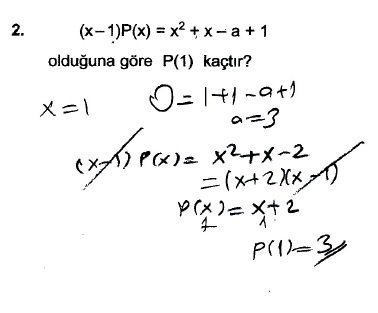 2. (x–1)P(x) = x² + x – a + 1
olduğuna göre P(1) kaçtır?
x = 1 0 = 1+1-a+1
a=3
(x-1) P(x) = x²+x-2
= (x+2)(x-1)
P(x) = x+2
1 1
P(1)=3